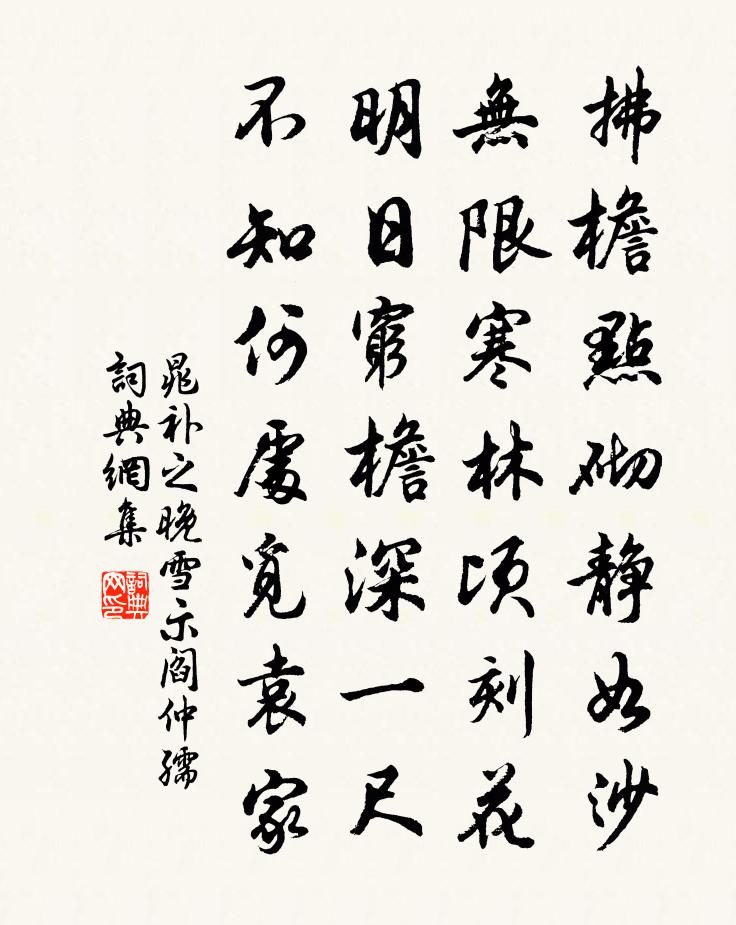 拂檐點砌静如沙
無限寒林頃刻花
明日窮檐深一尺
不知何處覓袁家
晁补之晚雪示閻仲孺
詞典網集
詞典网印